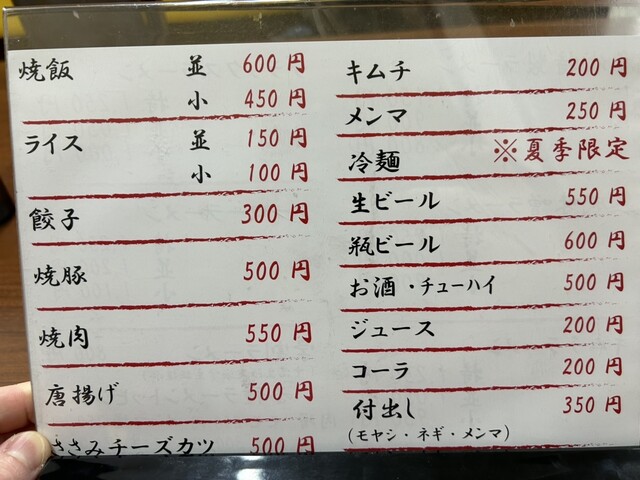 焼飯 並 600円
小 450円
ライス 並 150円
小 100円
餃子 300円
焼豚 500円
焼肉 550円
唐揚げ 500円
ささみチーズカツ 500円
キムチ 200円
メンマ 250円
冷麺 ※夏季限定
生ビール 550円
瓶ビール 600円
お酒・チューハイ 500円
ジュース 200円
コーラ 200円
付出し 350円
(モヤシ・ネギ・メンマ)